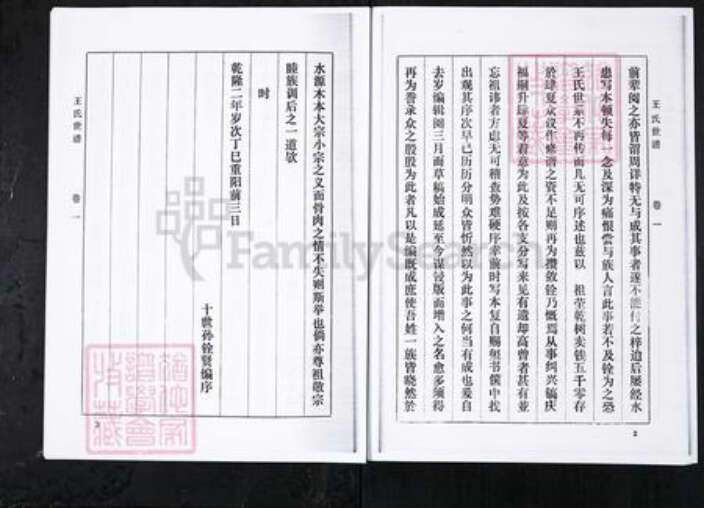 王氏世譜 卷一
前辈阅之亦皆谓周详特无与成其事者遂不能付之梓迨后屡经水
患写本顿失每一念及深为痛恨尝与族人言此事若不及铨为之恐
王氏世系不再传而几无可序述也兹以 祖茔乾树卖钱五千零存
於肆夏众议作修谱之资不足则再为攒敛铨乃慨焉从事纠兴镐庆
福嗣升肆夏等着意为此及按各支分写来见有遗却高曾者甚有並
忘祖讳者方虑无可稽查势难硬序幸前时写本复自赐玺书箧中找
出观其序次早已历历分明众皆忻然以为此事之何当有成也爰自
去岁编辑阅三月而草稿始成延至今谋锓版而增入之名愈多须得
再为誊录众之殷殷为此者凡以是编既成庶使吾姓一族皆晓然於
2
王氏世譜 卷一
水源木本大宗小宗之义而骨肉之情不失则斯举也倘亦尊祖敬宗
睦族调后之一道欤
时
乾隆二年岁次丁巳重阳前三日
十世孙铨贤编序
3
FamilySearch